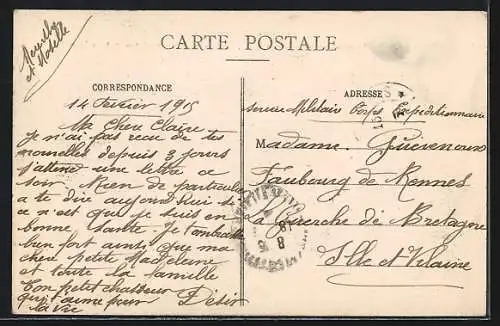 CARTE POSTALE
CORRESPONDANCE
14 Février 1915
Ma Chere Claire
Je n'ai pas recu de tes
nouvelles depuis 3 jours
j'attend une lettre ce
soir Rien de particulier
a te dire aujourd'hui si
ce n'est que je suis en
bonne sante Je t'embrasse
bien fort ainsi que ma
chere petite Madeleine
et toute la famille
ton petit chasseur
qui t'aime pour Désir
la vie
ADRESSE
service Militaire Corps Expeditionnaire
Madame
Faubourg de Rennes
La Guerche de Bretagne
Ille et Vilaine